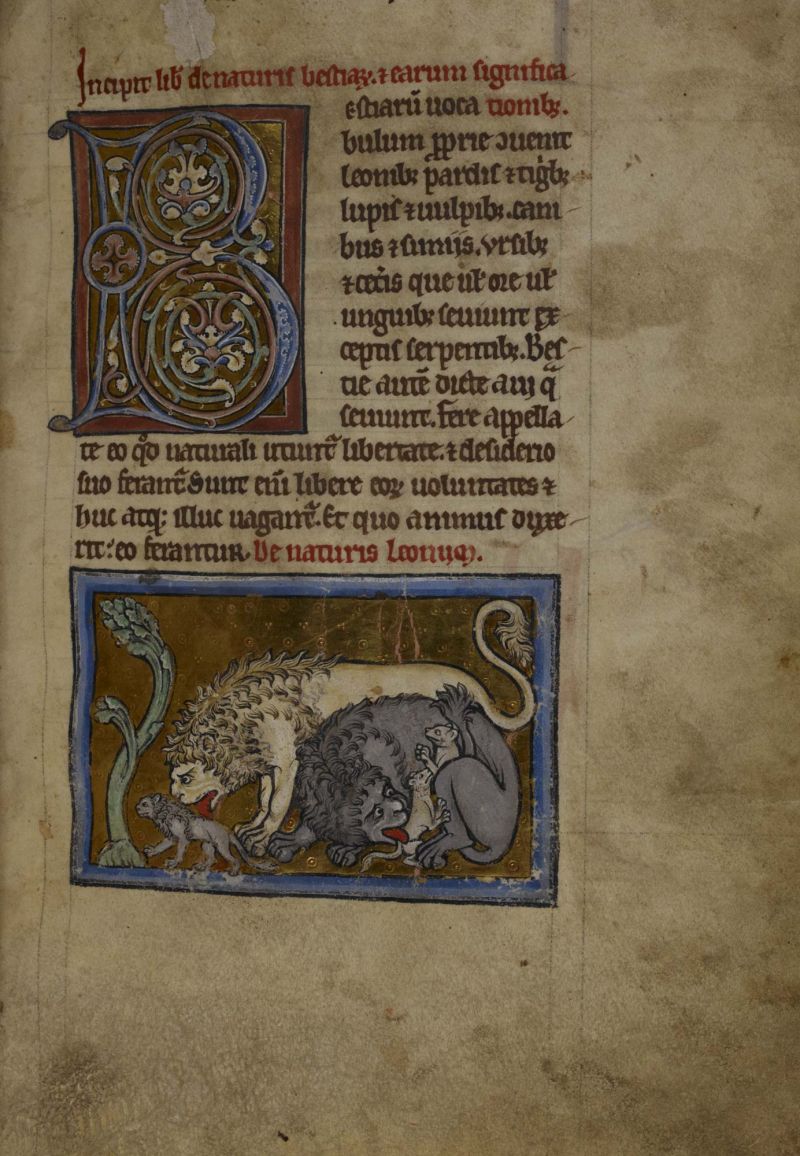 Incipit lib̄ de naturis bestiaꝝ. ⁊ earum significa
estiarū uoca tionibꝫ.
bulum ꝓprie ↄuenit
leonibꝫ pardis ⁊ tig̍bꝫ
lupis ⁊ uulpibꝫ. cani
bus ⁊ simijs. vrsibꝫ
⁊ cet̄is que ul̄ ore ul̄
unguibꝫ seuiunt ex
ceptis serpentibꝫ. Bes
tie autē dicte a ui q̄
seuiunt. fere appella
te eo q̄d naturali utunt᷑ libertate. ⁊ desiderio
suo ferant᷑ Sunt eni̅ libere eoꝝ uoluntates ⁊
huc atqꝫ illuc uagant᷑. Et quo animus duxe
rit: eo feruntur. De naturis Leonum.